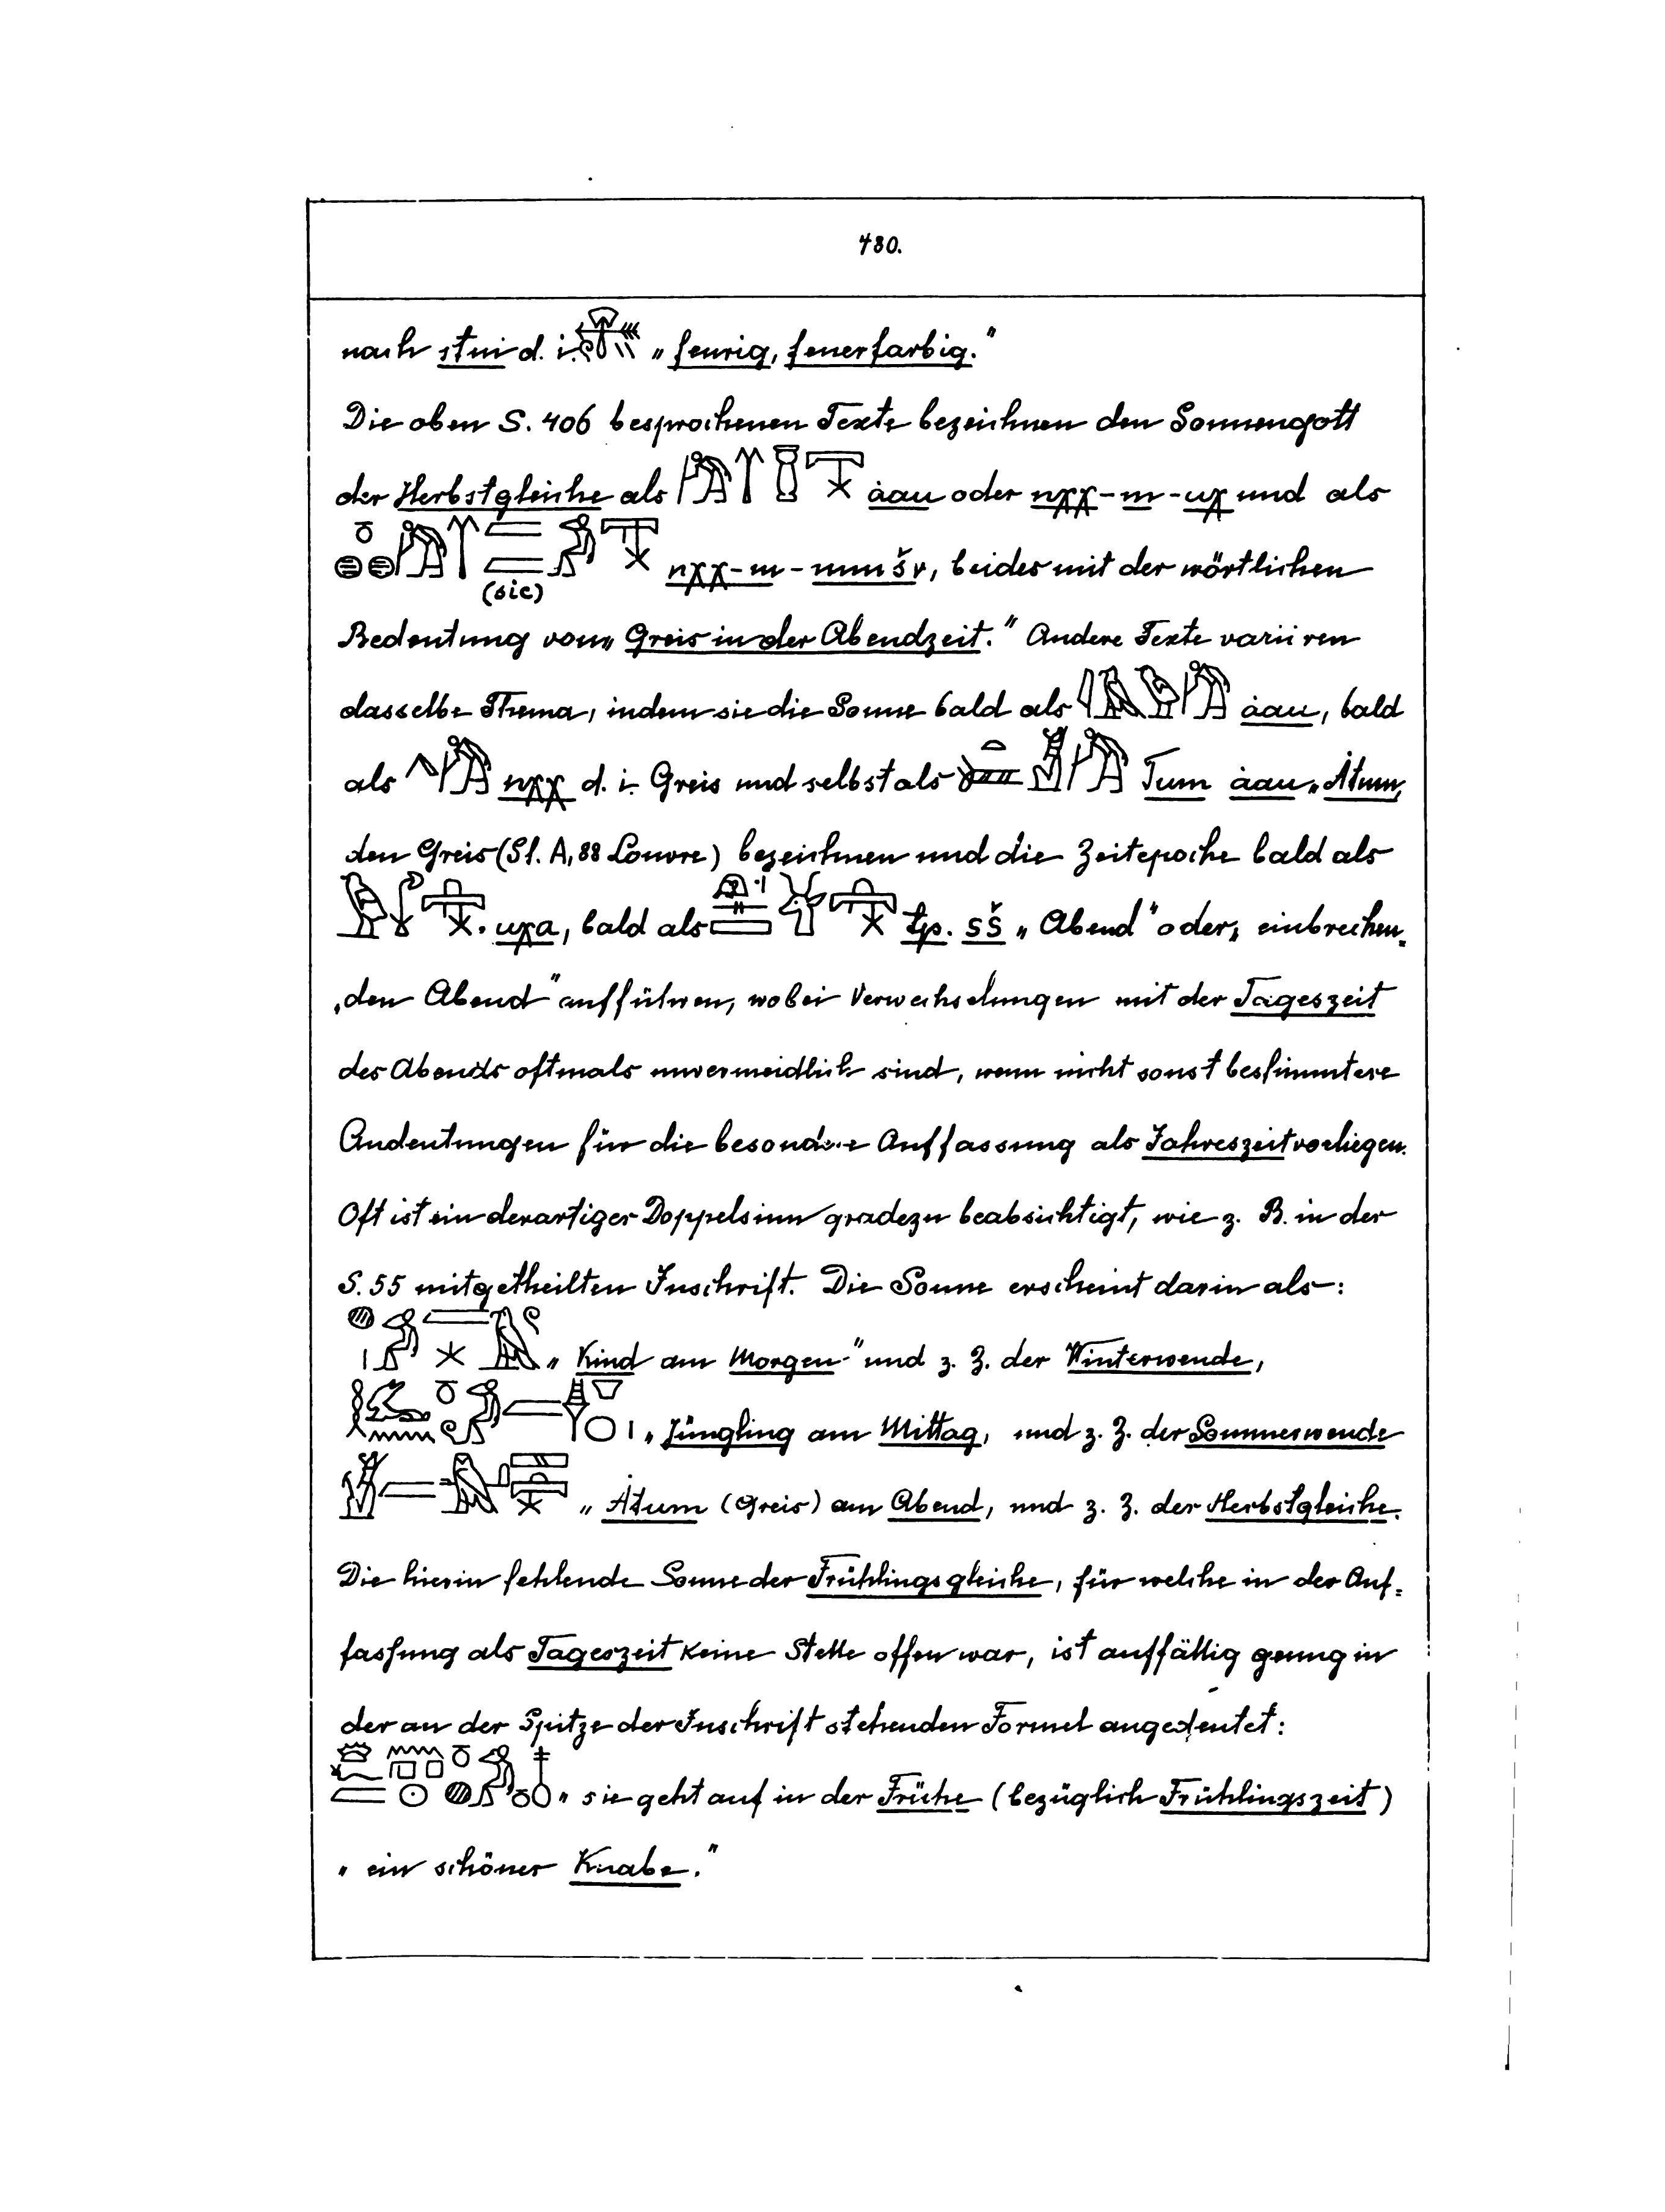 480.
nach stui d. i. „feurig, feuerfarbig.“
Die oben S. 406 besprochenen Texte bezeichnen den Sonnengott
der Herbstgleiche als ȧau oder nχχ-m-uχ und als
(sic) nχχ-m-mmšr, beides mit der wörtlichen
Bedeutung von „Greis in der Abendzeit.“ Andere Texte variiren
dasselbe Thema, indem sie die Sonne bald als ȧau, bald
als nχχ d. i. Greis und selbst als Tum ȧau „Atum,
den Greis (St. A, 88 Louvre) bezeichnen und die Zeitepoche bald als
uχa, bald als tp. sš „Abend“ oder „einbrechen-
„den Abend“ aufführen, wobei Verwechselungen mit der Tageszeit
des Abends oftmals unvermeidlich sind, wenn nicht sonst bestimmtere
Andeutungen für die besondere Auffassung als Jahreszeit vorliegen.
Oft ist ein derartiger Doppelsinn gradezu beabsichtigt, wie z. B. in der
S. 55 mitgetheilten Inschrift. Die Sonne erscheint darin als:
„Kind am Morgen“ und z. Z. der Winterwende,
„Jüngling am Mittag, und z. Z. der Sommerwende
„Atum (Greis) am Abend, und z. Z. der Herbstgleiche.
Die hierin fehlende Sonne der Frühlingsgleiche, für welche in der Auf-
fassung als Tageszeit keine Stelle offen war, ist auffällig genug in
der an der Spitze der Inschrift stehenden Formel angedeutet:
„sie geht auf in der Frühe (bezüglich Frühlingszeit)
„ein schöner Knabe.“